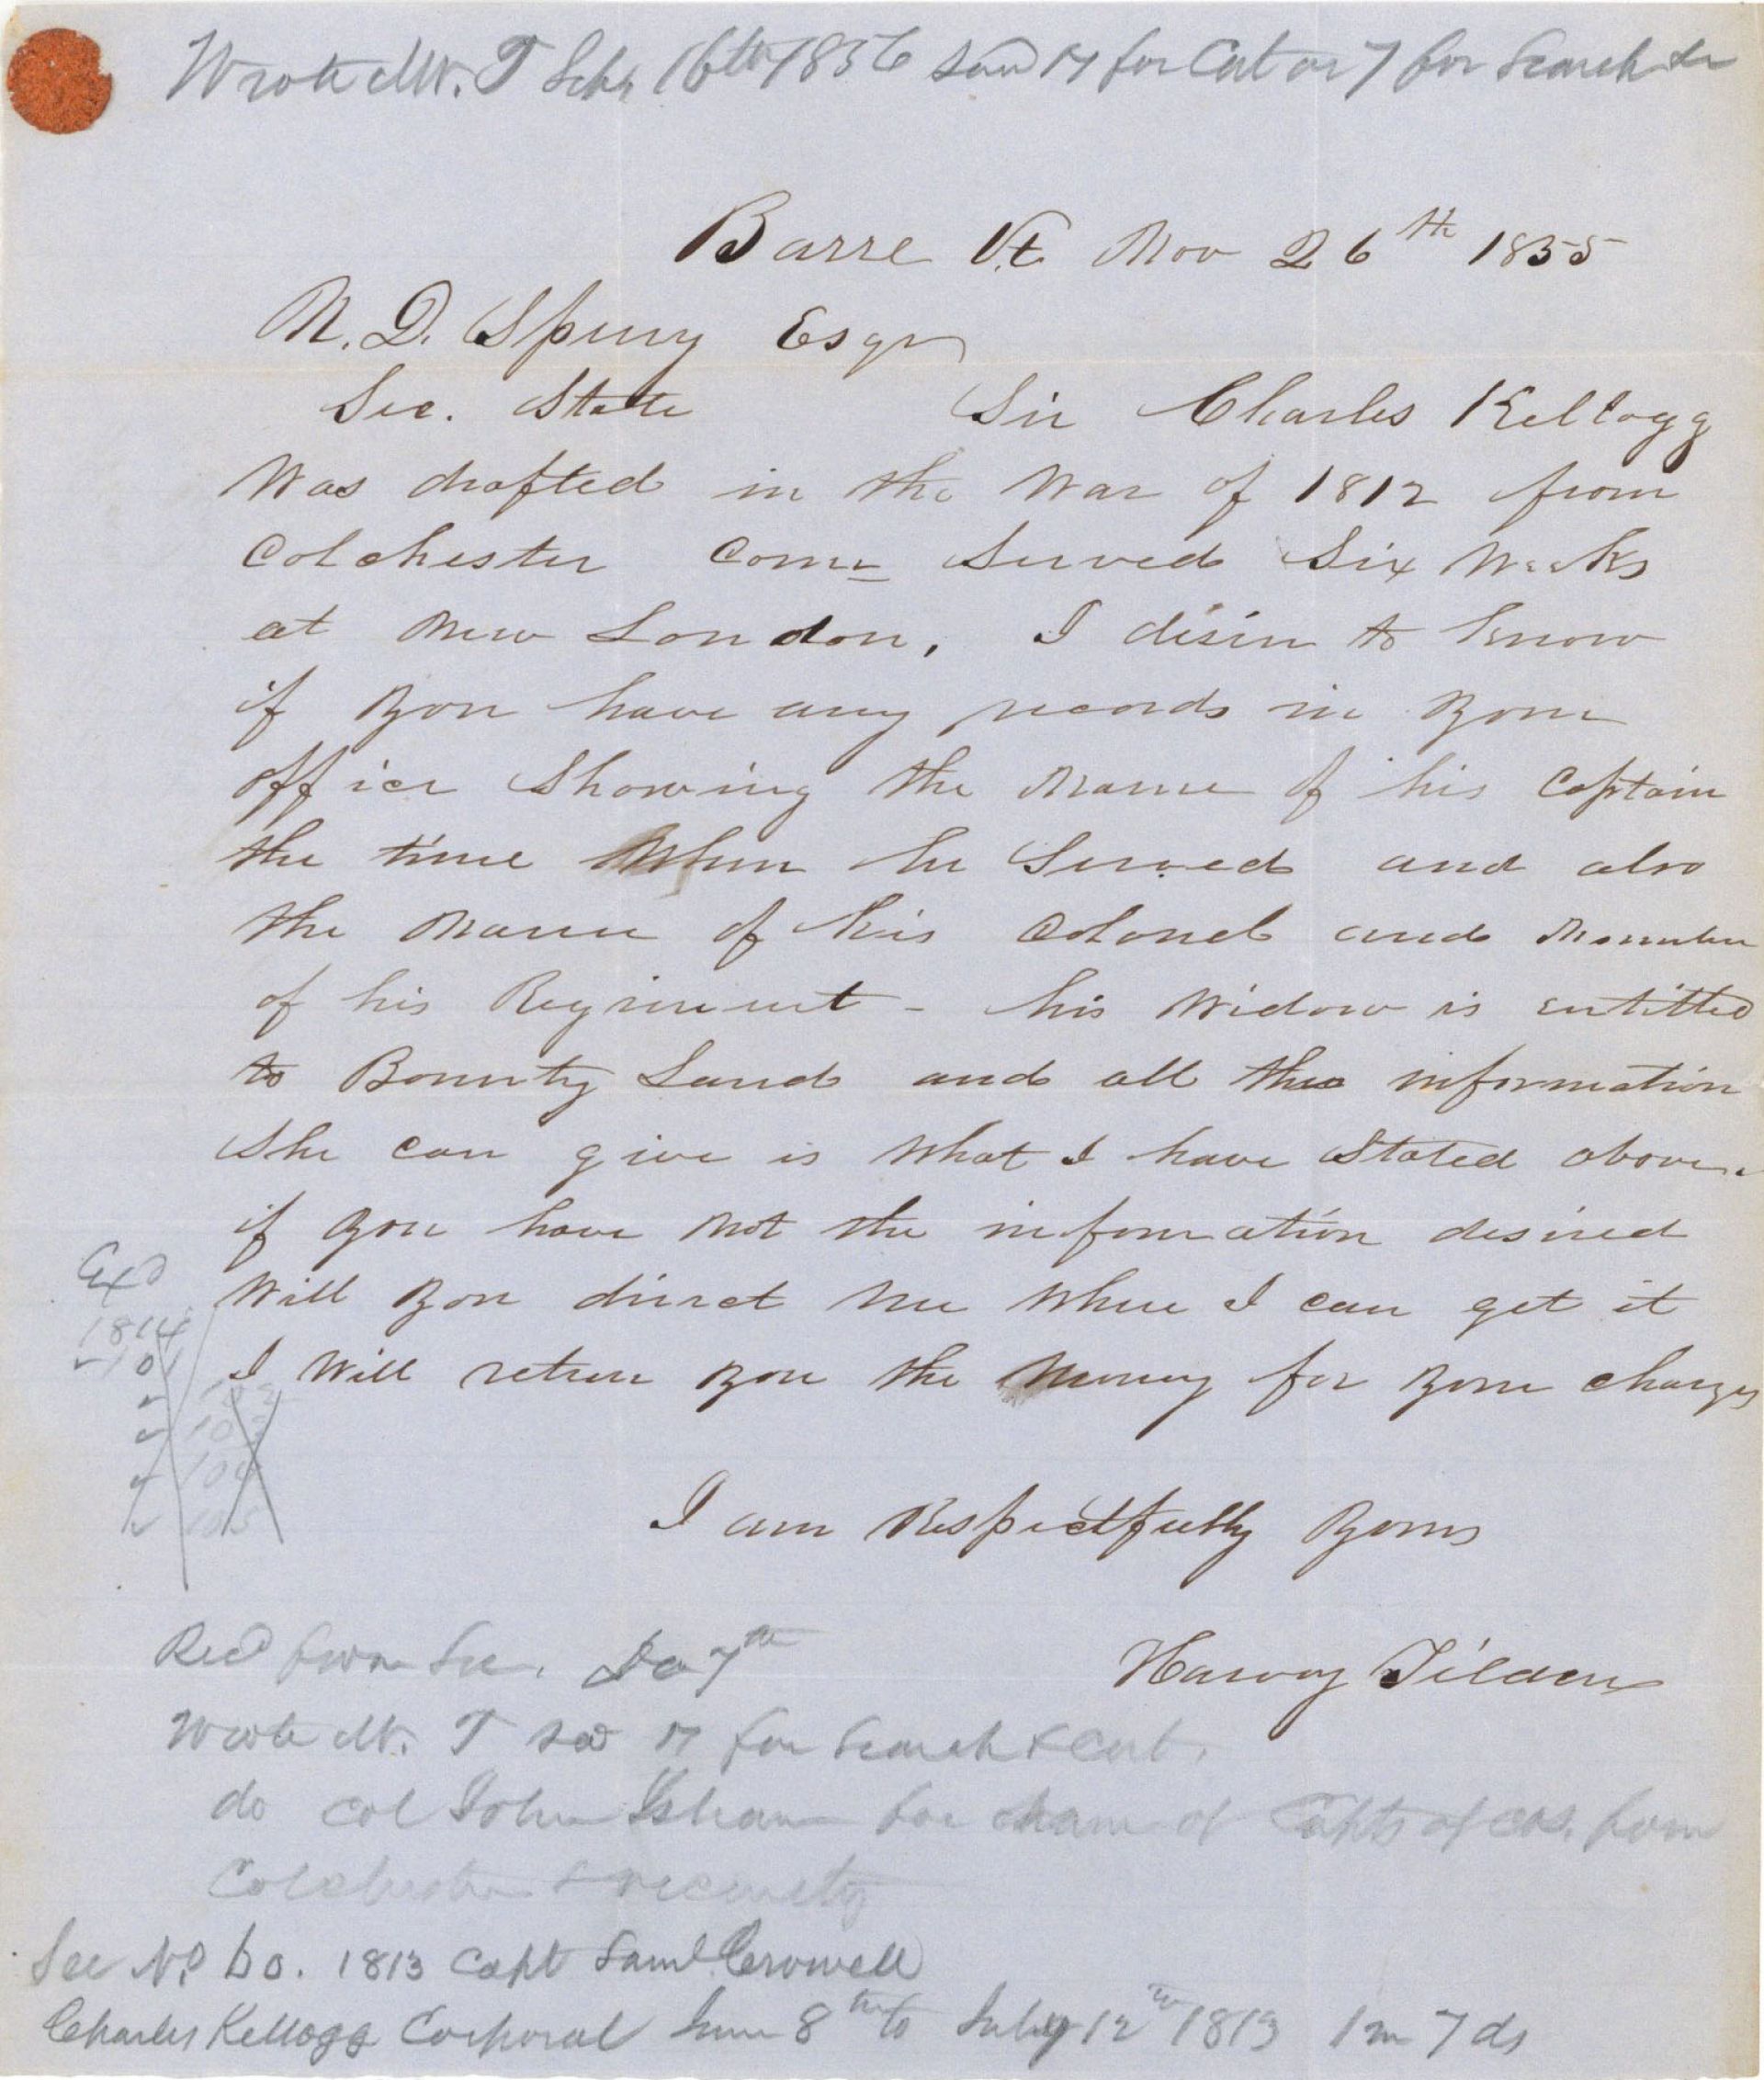 Wrote Mr. T Feby 16th 1856 for Cert or 7 for Search &c
Barre Vt. Nov 26th 1855
N. D. Sperry Esqr
Sec. State Sir Charles Kellogg
Was drafted in the War of 1812 from
Colchester Conn Served Six Weeks
at New London, I desire to know
if you have any records in your
office Showing the Name of his Captain
the time When he Served and also
the Name of his Colonel and Number
of his Regiment - his Widow is entitled
to Bounty Land and all the information
She can give is What I have Stated above.
if you have Not the information desired
Will you direct me Where I can get it
I Will return you the Money for your charges
Exd
1814
101
102
103
104
105
I am Respectfully Yours
Harvey Tilden
Recd from Sec. De 7th
Wrote Mr. T for Search & Cert.
do Col John Isham for Name of Capts of cos. from
Colchester & vicinity
See No 60. 1813 Capt Saml Crowell
Charles Kellogg Corporal June 8th to July 12th 1813 1m 7 ds